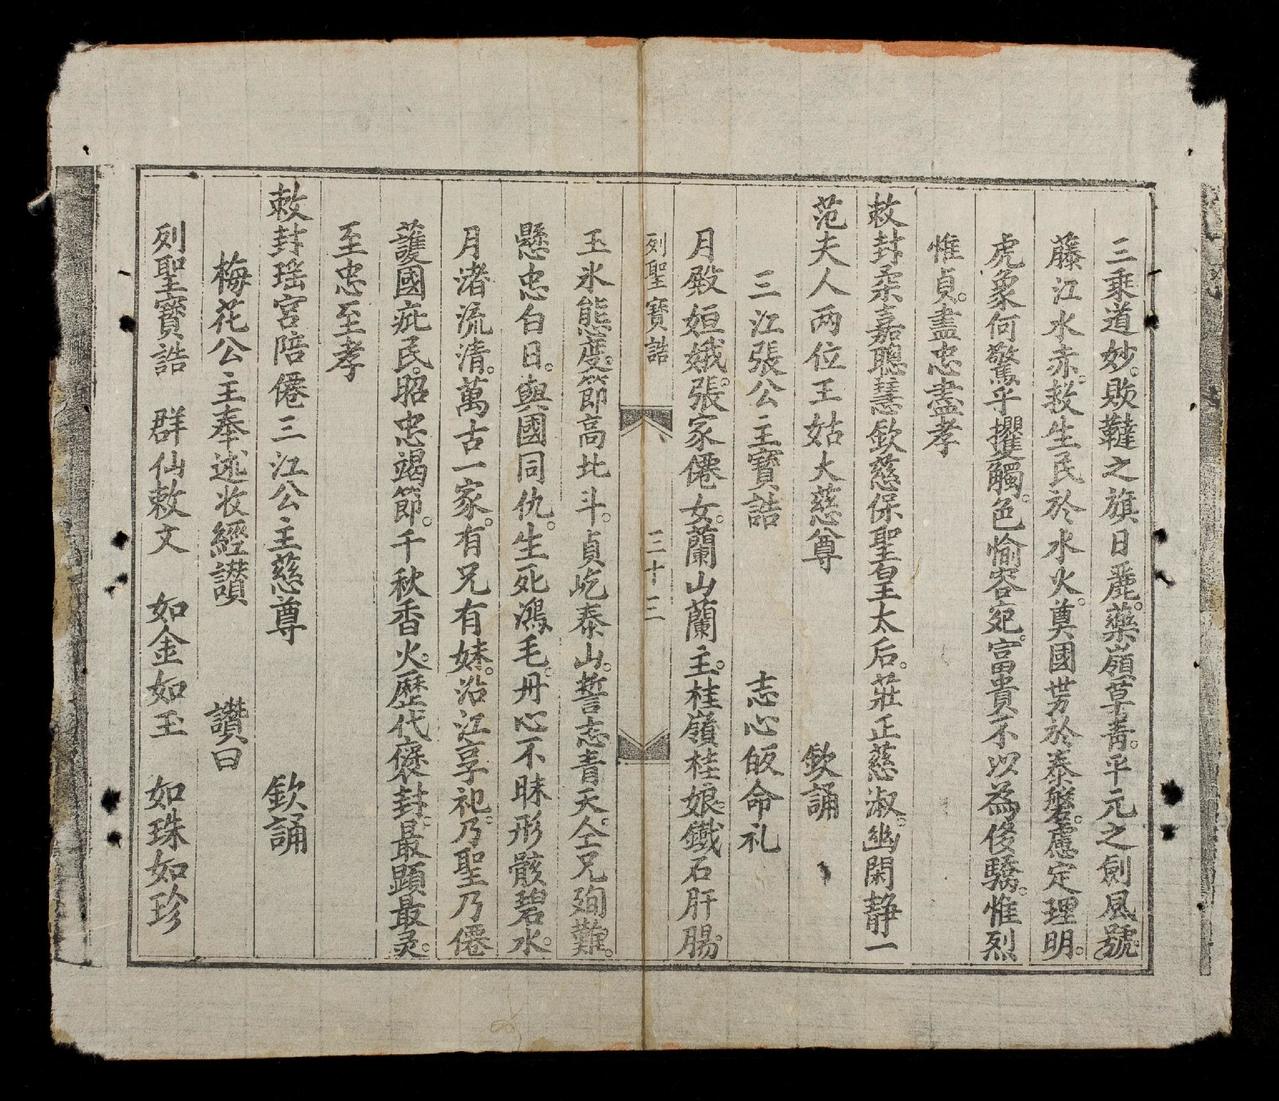 三乘道妙。歟韃之旗日麗。藥嶺草青。平元之劍風號
藤江水赤。救生民於水火。奠國勢於泰磐。慮定理明。
虎象何驚乎攫觸。色愉容宛。富貴不以為倰驕。惟烈
惟貞。盡忠盡孝
敕封柔嘉聰慧欽慈保聖皇太后。莊正慈淑。幽閑靜一
范夫人两位王姑大慈尊 欽誦
三江張公主寶誥 志心皈命礼
月殿姮娥。張家僊女。蘭山蘭主。桂嶺桂娘。鐵石肝腸。
列聖寶誥 三十三
玉氷態度。節高北斗。貞屹泰山。誓志青天。仝兄殉難。
懸忠白日。與國同仇。生死鴻毛。丹心不昧。形骸碧水。
月渚流清。萬古一家。有兄有妹。沿江享祀。乃聖乃僊
護國疪民。昭忠竭節。千秋香火。歷代褒封。最顯最灵。
至忠至孝
敕封瑶宮陪僊三江公主慈尊 欽誦
梅花公主奉述收經讃 讃曰
列聖寶誥 群仙敕文 如金如玉 如珠如珍